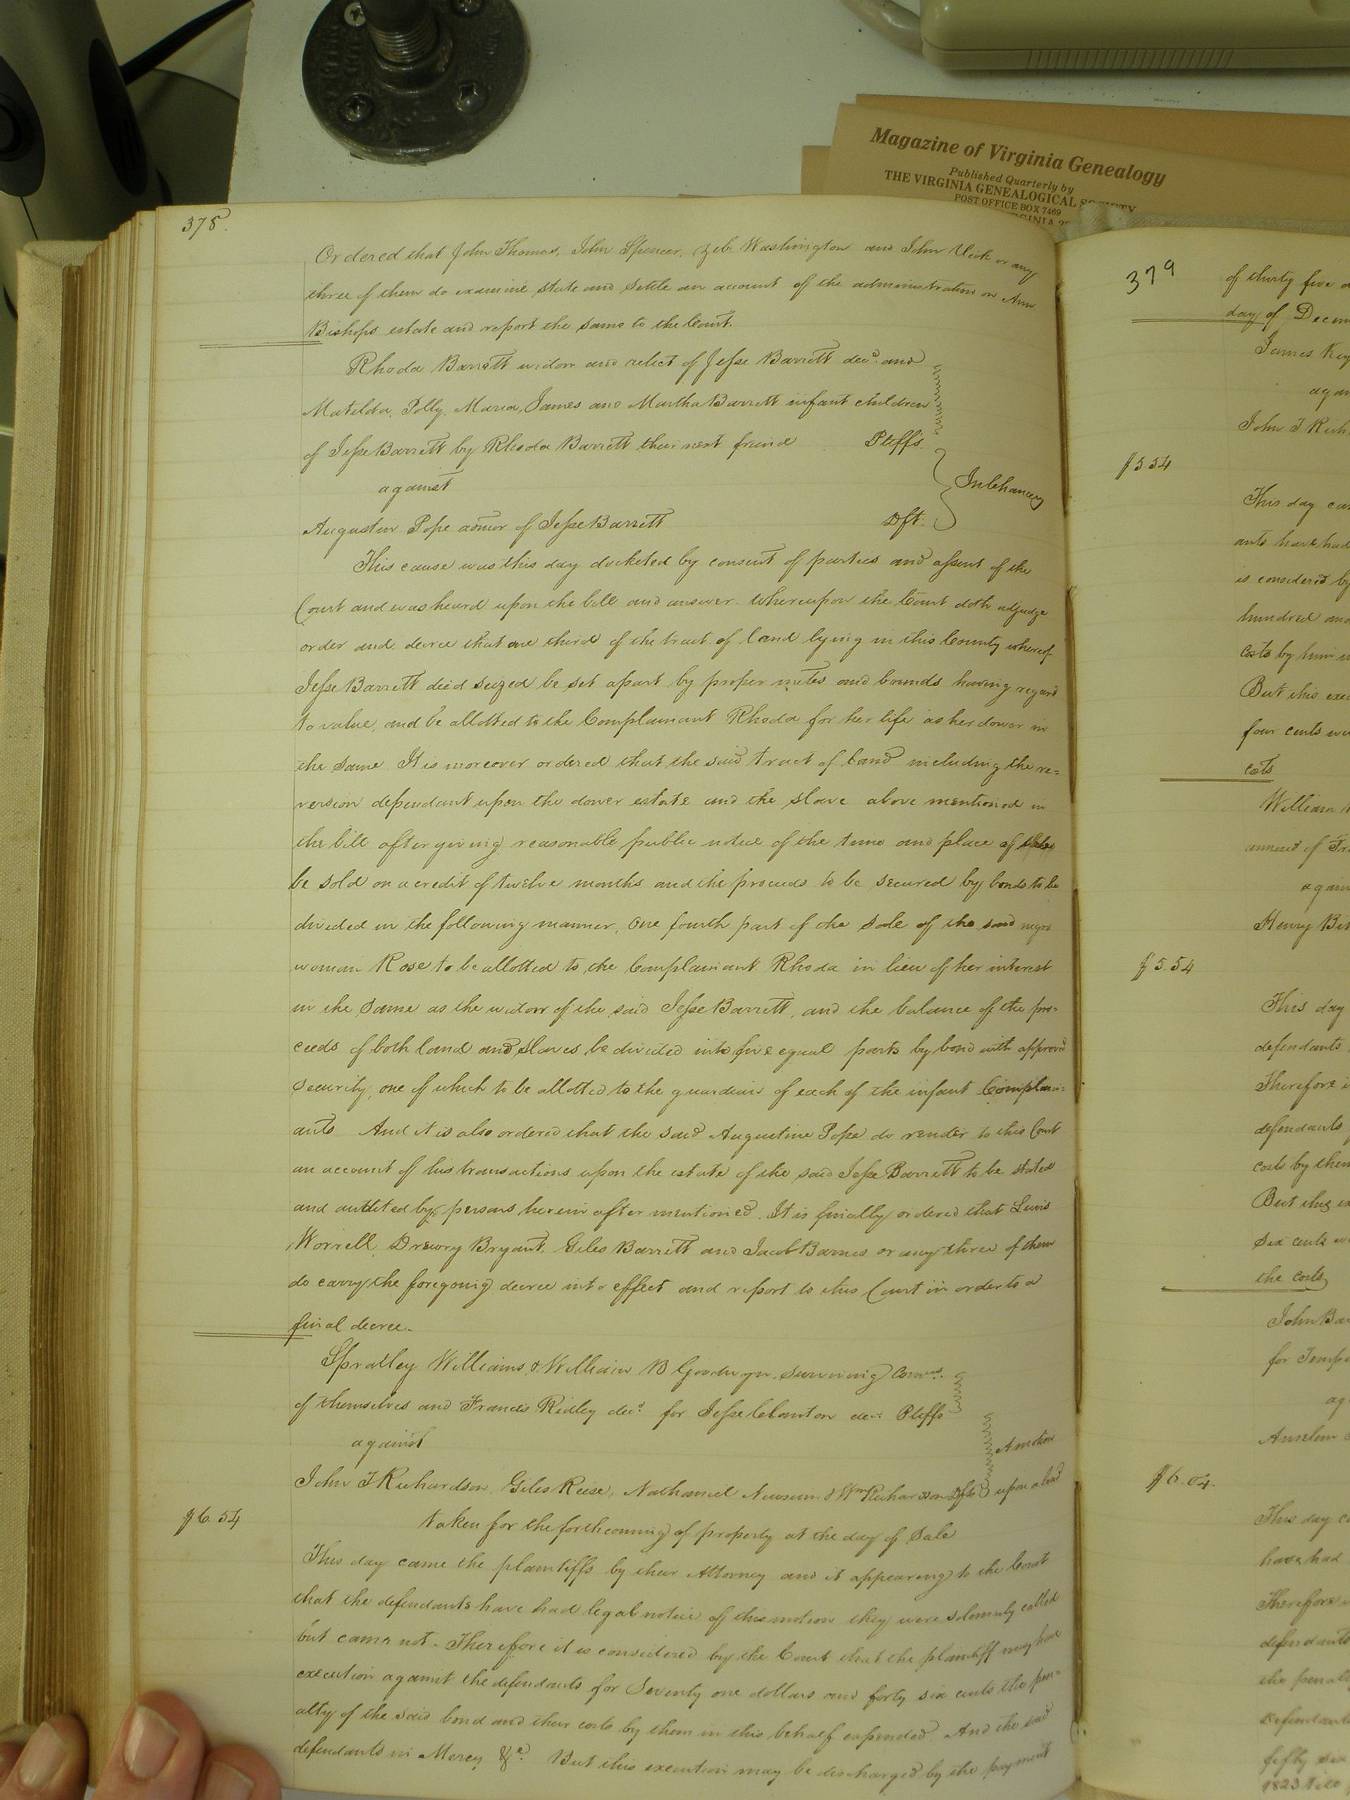 Magazine of Virginia Genealogy
Published Quarterly by
THE VIRGINIA GENEALOGICAL SOCIETY
POST OFFICE BOX 7469
378.
Ordered that John Thomas, John Spencer, Washington and John Vick or any
three of them do examine state and settle an account of the administration on Ann
Bishops estate and report the same to the Court.
Rhoda Barrett widow and relict of Jesse Barrett decd. and
Matilda, Polly, Maria, James and Martha Barrett infant children
of Jesse Barrett by Rhoda Barrett their next friend Pltffs.
against
In Chancery
Augustin Pope admor of Jesse Barrett Dft.
This cause was this day docketed by consent of parties and assent of the
Court and was heard upon the bill and answer. Whereupon the Court doth adjudge
order and decree that one third of the tract of land lying in this County whereof
Jesse Barrett died seized be set apart by proper metes and bounds having regard
to value, and be allotted to the Complainant Rhoda for her life as her dower in
the same. It is moreover ordered that the said tract of land including the re=
version dependant upon the dower estate and the slave above mentioned in
the bill after giving reasonable public notice of the time and place of
be sold on a credit of twelve months and the proceeds to be secured by bonds to be
divided in the following manner, One fourth part of the sale of the said negro
woman Rose to be allotted to the Complainant Rhoda in lieu of her interest
in the same as the widow of the said Jesse Barrett, and the balance of the pro-
ceeds of both land and slaves be divided into five equal parts by bond with approved
security, one of which to be allotted to the guardian of each of the infant Complain-
ants. And it is also ordered that the said Augustine Pope do render to this Court
an account of his transactions upon the estate of the said Jesse Barrett to be stated
and audited by persons herein after mentioned. It is finally ordered that Lewis
Worrell, Drewry Bryant, Giles Barrett and Jacob Barnes or any three of them
do carry the foregoing decree into effect and report to this Court in order to a
final decree.
Spratley Williams & William B Goodwyn surviving Comrs.
of themselves and Francis Ridley decd. for Jesse Clanton Pltffs
against
A motion
John T Richardson, Giles Reese, Nathaniel Newsum & Wm Richardson Dfts upon a bond
$6.54
taken for the forthcoming of property at the day of Sale
This day came the plaintiffs by their Attorney and it appearing to the Court
that the defendants have had legal notice of this motion they were solemnly called
but came not. Therefore it is considered by the Court that the plaintiff may have
execution against the defendants for Seventy one dollars and forty six cents the pen-
alty of the said bond and their costs by them in this behalf expended. And the said
defendants in Mercy &c. But this execution may be discharged by the payment
379
of thirty five
day of Decem
James
again
John T Rich
$5.54
This day ca
ants have had
is considered by
hundred and
costs by him
But this exe
four cents
costs
William
of
again
Henry
$5.54
This day
defendants
Therefore
defendants
costs by them
But this ex
six cents
the costs
John Ba
for
ag
Anselm
$6.04.
This day c
have had
Therefore
defendants
the penal
defendants
fifty six
1823 till